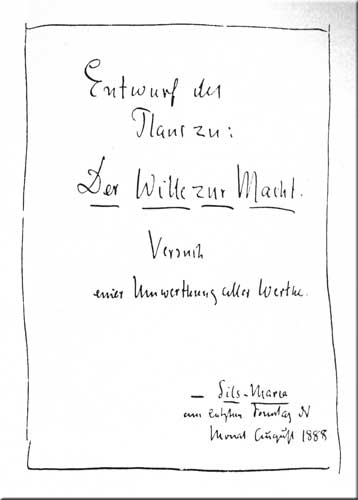 Entwurf des
Plans zu:
Der Wille zur Macht.
Versuch
einer Umwerthung aller Werthe.
— Sils-Maria
am letzten Sonntag des
Monat August 1888